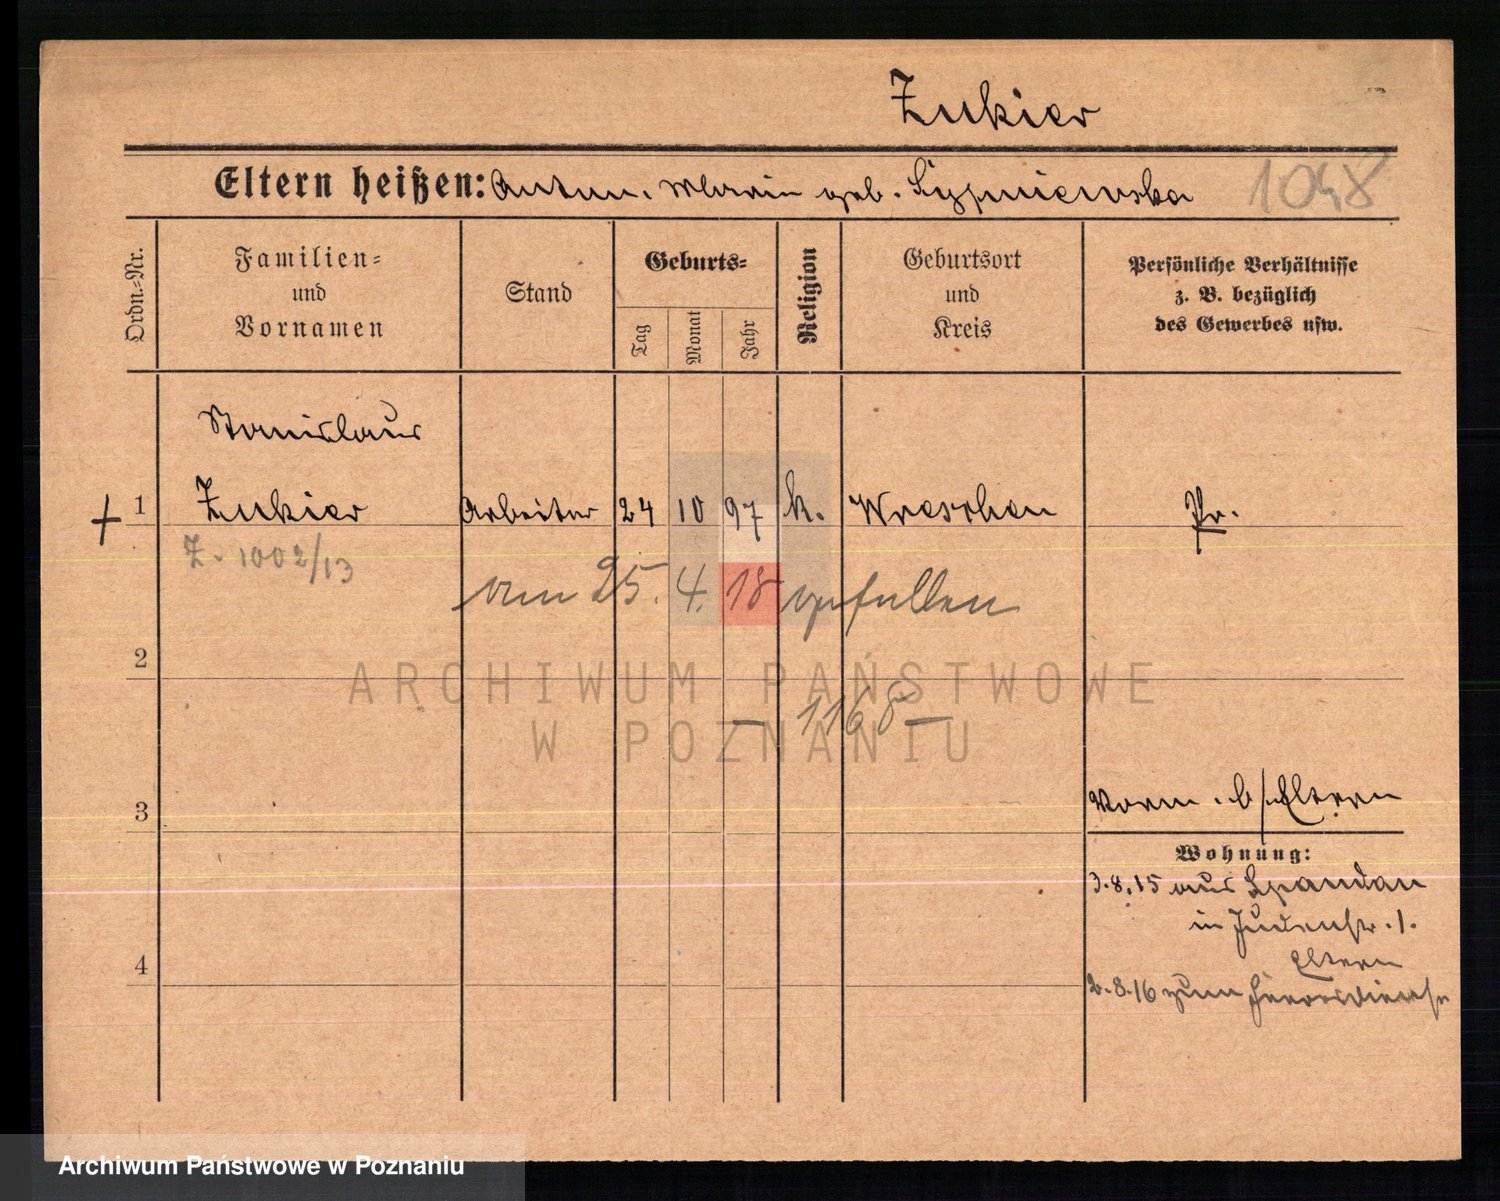 Zukier
Eltern heißen: Anton. Maria geb. Szypniewska
1048
Ordn.-Nr.
Familien-
und
Vornamen
Stand
Geburts-
Tag
Monat
Jahr
Religion
Geburtsort
und
Kreis
Persönliche Verhältnisse
z. B. bezüglich
des Gewerbes usw.
Stanislaus
1 Zukier Arbeiter 24 10 97 k. Wreschen Pr.
Z. 1002/13
am 25. 4. 18 gefallen
2
ARCHIWUM PAŃSTWOWE
W POZNANIU
– 1168 –
3
Vorm. b/Eltern
Wohnung:
3.8.15 aus Spandau
in Judenstr. 1.
Eltern
4
2.8.16 zum Heeresdienst
Archiwum Państwowe w Poznaniu